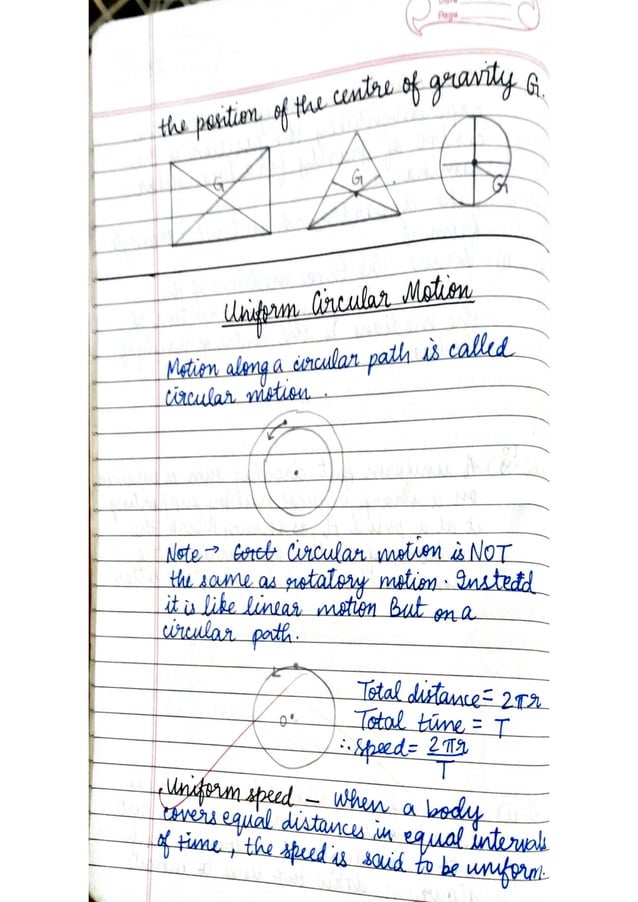 Page
the position of the centre of gravity G.
G
G
G
Uniform Circular Motion
Motion along a circular path is called
circular motion.
Note → Circular motion is NOT
the same as rotatory motion. Instetd
it is like linear motion But on a
circular path.
O
Total distance = 2πr
Total time = T
∴ Speed = 2πr
T
Uniform speed – When a body
covers equal distances in equal intervals
of time, the speed is said to be uniform.